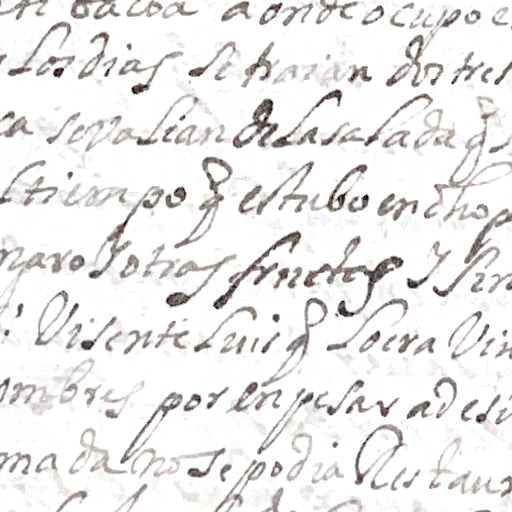 tibacoa a onde ocupo e
los dias se traian dos tres
ca sevalian de la salada q s
l tiempo q estubo en dho p
naro Y otras fructas Y sin
Visente Luis q lo era Vin
ombres por enpesar a desi
mada no se podia Restaur